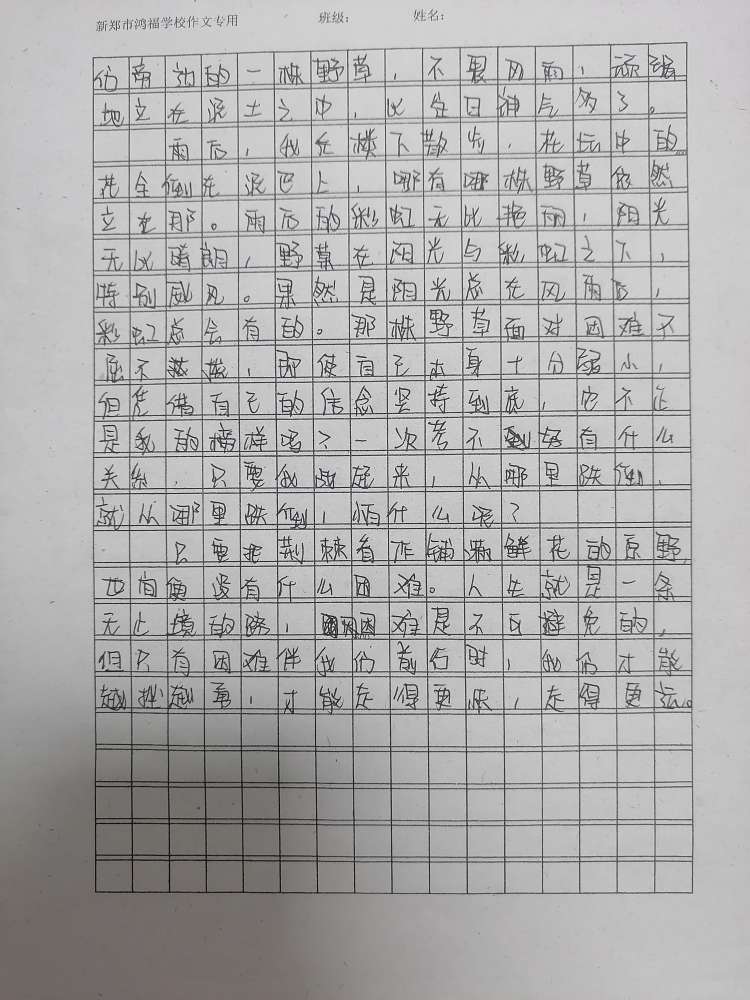 新郑市鸿福学校作文专用 班级： 姓名：
们旁边的一株野草，不畏风雨，顽强
地立在泥土之中，比生日神气多了。
雨后，我在楼下散步，在坛中的
花全倒在泥巴上，唯有哪株野草依然
立在那。雨后的彩虹无比艳丽，阳光
无比晴朗，野草在阳光与彩虹之下，
特别威风。果然是阳光总在风雨后，
彩虹总会有的。那株野草面对困难不
屈不挠，即使自己本身十分弱小，
但凭借自己的信念坚持到底，它不正
是我的榜样吗？一次考不到好有什么
关系，只要我站起来，从哪里跌倒，
就从哪里跌倒，怕什么呢？
只要把荆棘看作铺满鲜花的原野，
世间便没有什么困难。人生就是一条
无止境的路，困难是不可避免的，
但只有困难伴我们前行时，我们才能
越挫越勇，才能走得更快，走得更远。